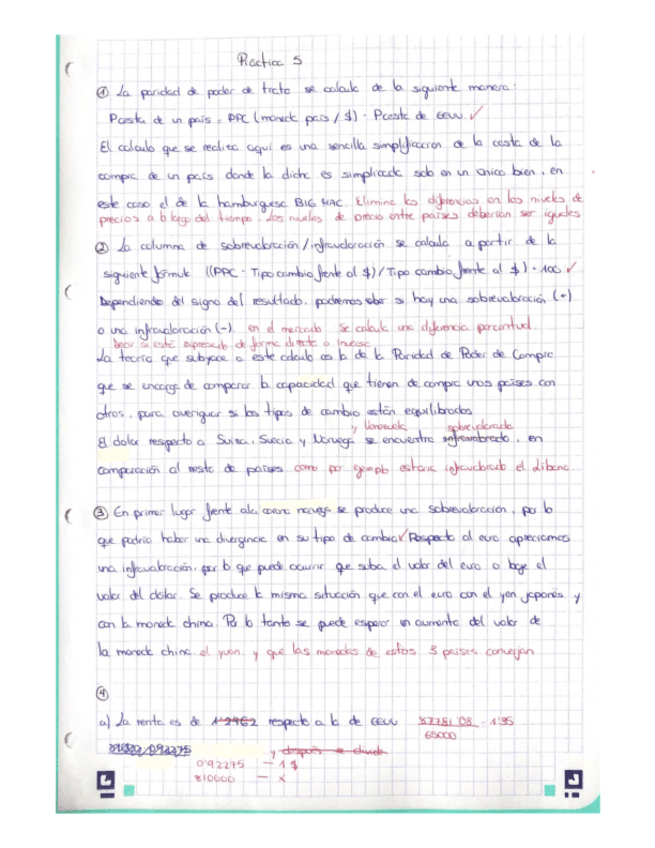 Práctica 5
① La paridad de poder de trato se calcula de la siguiente manera:
Pcesta de un país = PPC (moneda país / $) · Pcesta de EEUU. ✓
El calculo que se realiza aqui es una sencilla simplificacion de la cesta de la
compra de un país donde la dicha es simplificada solo en un unico bien, en
este caso el de la hamburguesa BIG MAC. Elimina las diferencias en los niveles de
precios a lo largo del tiempo. Los niveles de precio entre países deberían ser iguales
② La columna de sobrevaloración / infravaloración se calcula a partir de la
siguiente fórmula ((PPC - Tipo cambio frente al $) / Tipo cambio frente al $) · 100 ✓
Dependiendo del signo del resultado, podremos saber si hay una sobrevaloración (+)
o una infravaloración (-). en el mercado. Se calcula una diferencia porcentual.
si está expresado de forma directa o inversa
La teoría que subyace a este calculo es la de la Paridad de Poder de Compra
que se encarga de comparar la capacidad que tienen de compra unos países con
otros, para averiguar si los tipos de cambio están equilibrados
y Venezuela sobrevalorado
El dolar respecto a Suiza, Suecia y Noruega se encuentra infravalorado, en
comparación al resto de países como por ejemplo estaria infravalorado el Líbano.
③ En primer lugar frente a la corona noruega se produce una sobrevaloracion, por lo
que podría haber una divergencia en su tipo de cambio ✓ Respecto al euro apreciamos
una infravaloración, por lo que puede ocurrir que suba el valor del euro o baje el
valor del dolar. Se produce la misma situación que con el euro con el yen japonés y
con la moneda china. Por lo tanto se puede esperar un aumento del valor de
la moneda china. el yuan. y que las monedas de estos 3 países converjan
④
a) La renta es de 1'2462 respecto a la de EEUU 87781'08 = 1'35
65000
y después se divide
0'92275 — 1 $
810000 — x